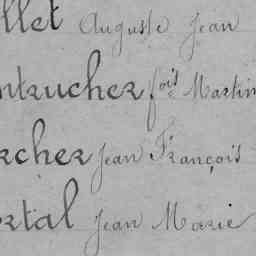 llet Auguste Jean
ntrucher fois Martin
rcher Jean François
rtal Jean Marie